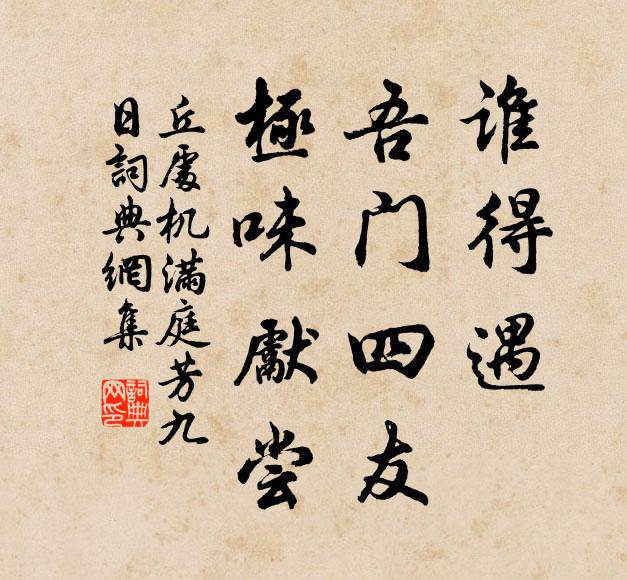 谁得遇
吾门四友
極味獻尝
丘處机满庭芳九
日詞典網集
詞典网印